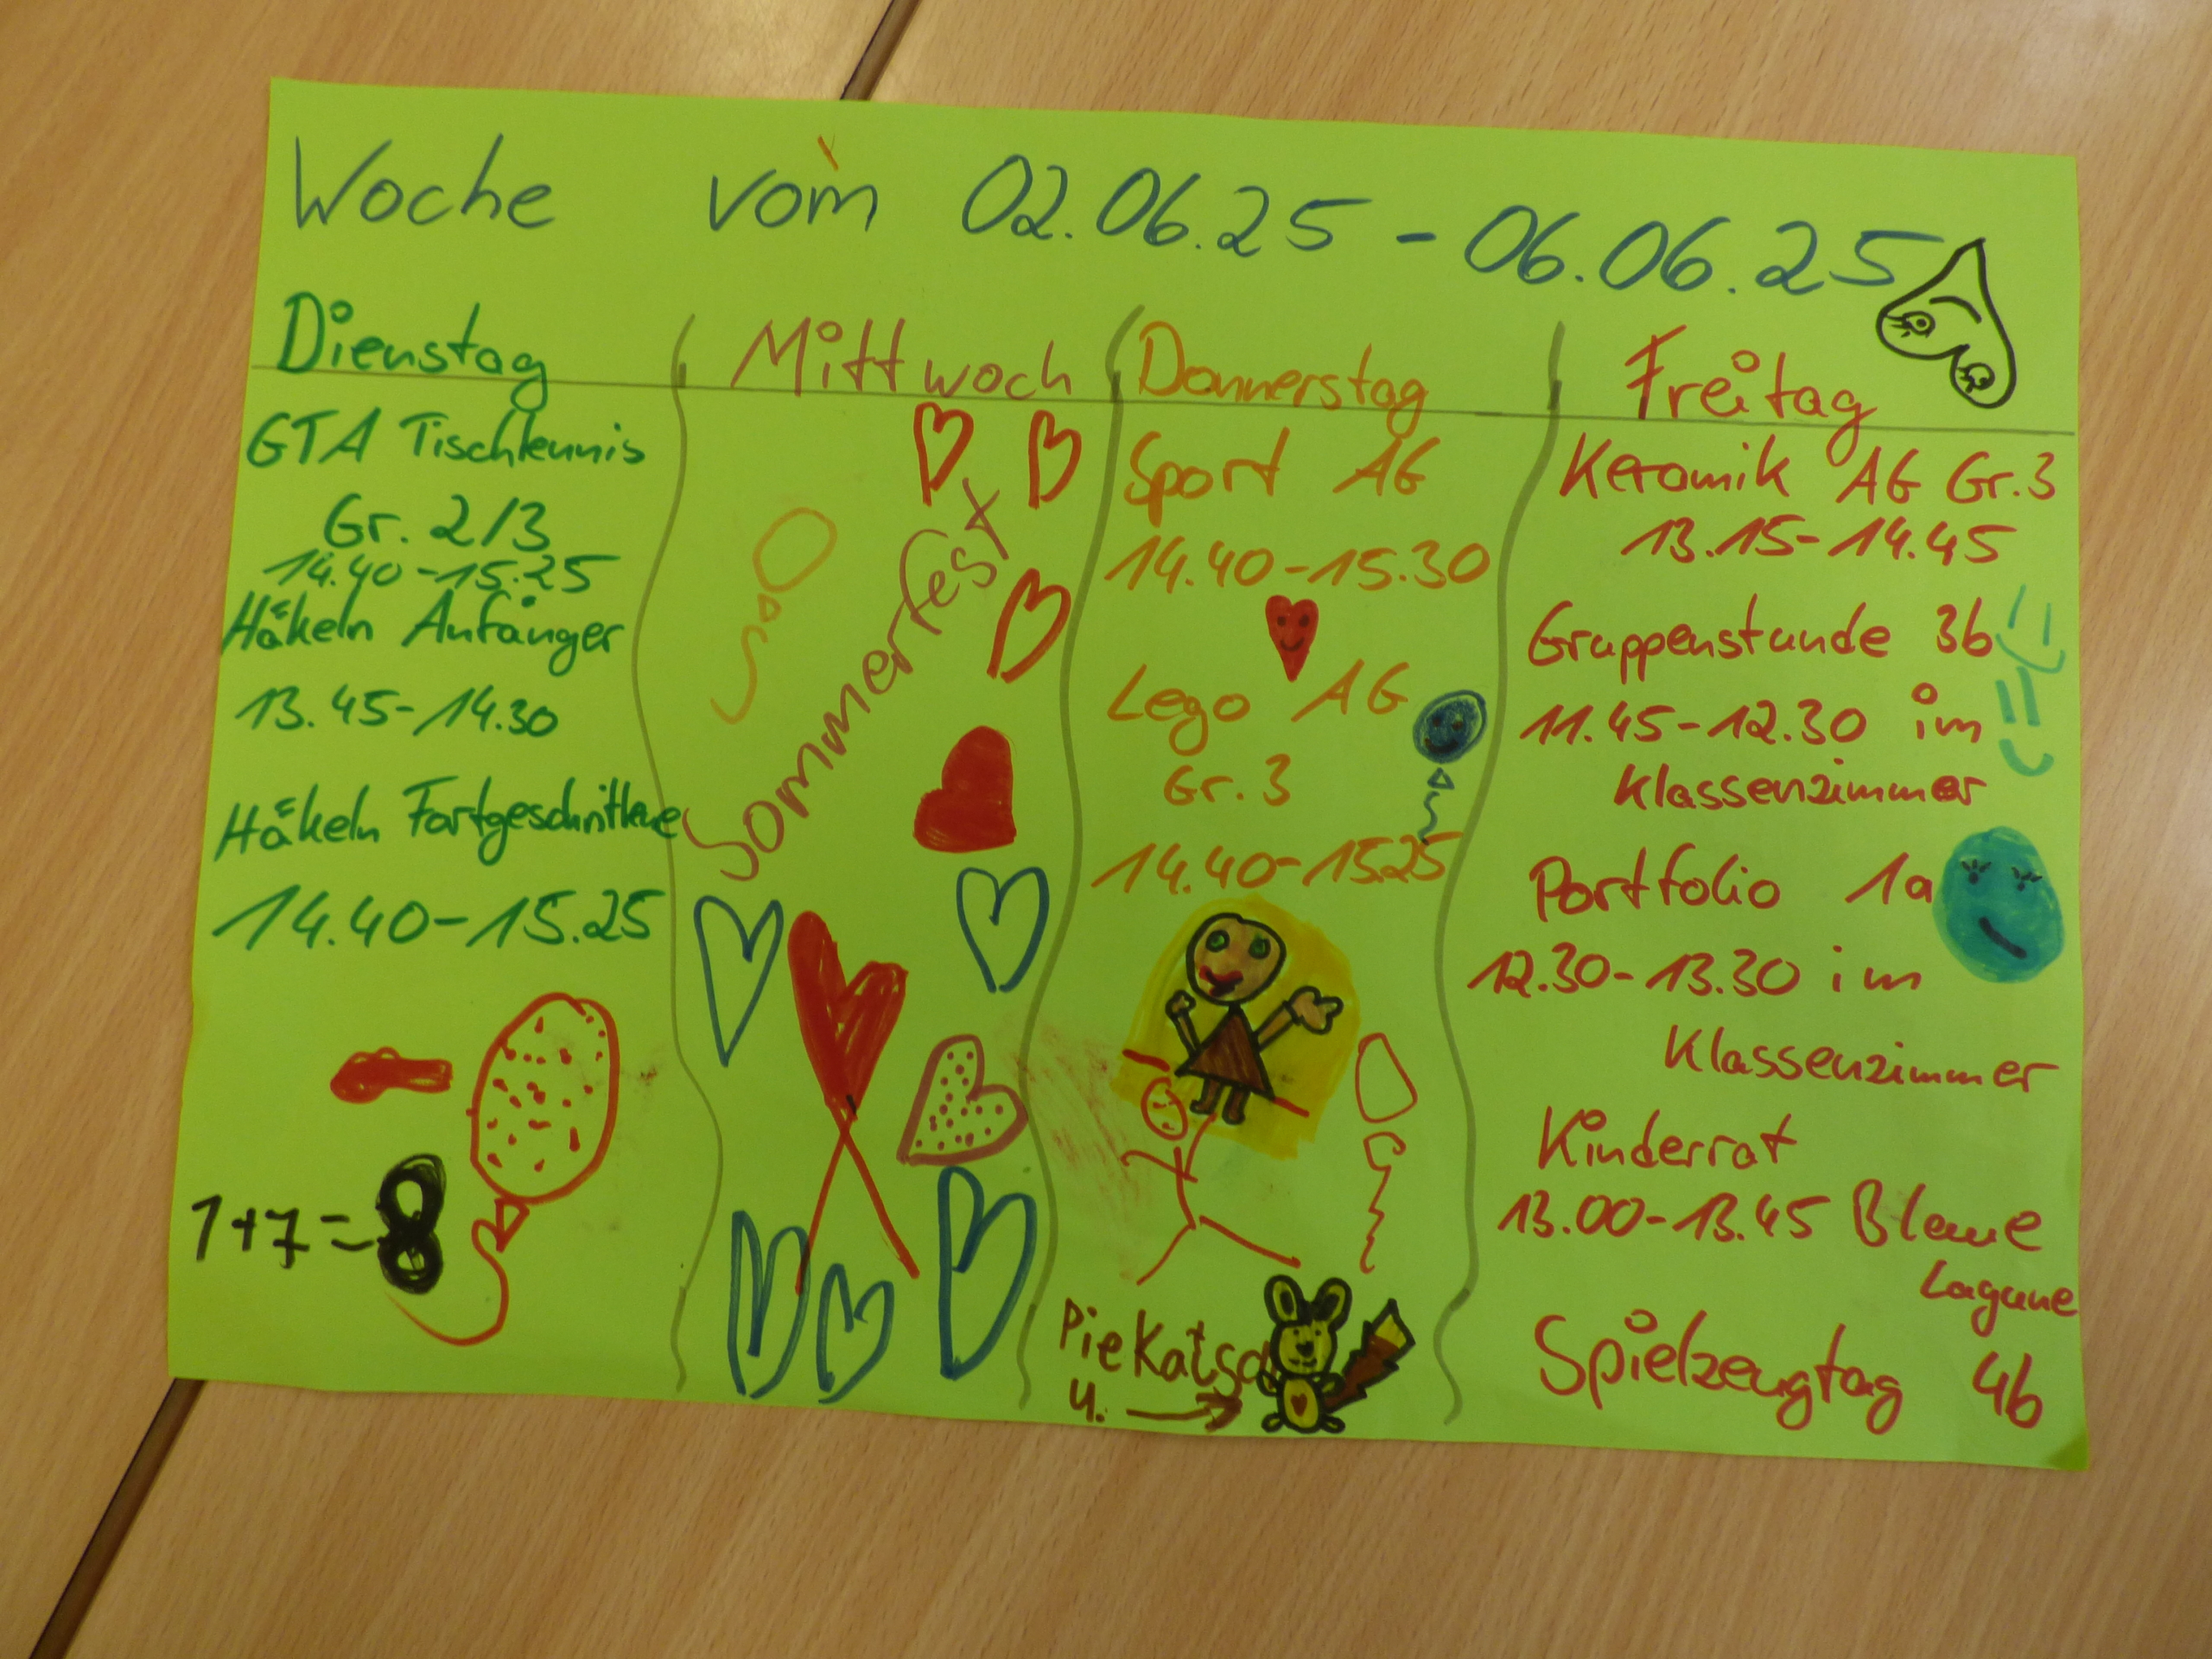 Woche vom 02.06.25 - 06.06.25
Dienstag
GTA Tischtennis
Gr. 2/3
14.40-15.25
Häkeln Anfänger
13.45-14.30
Häkeln Fortgeschrittene
14.40-15.25
1+7=8
Mittwoch
Sommerfest
Donnerstag
Sport AG
14.40-15.30
Lego AG
Gr. 3
14.40-15.25
PieKatso
u.
Freitag
Keramik AG Gr.3
13.15-14.45
Gruppenstunde 3b
11.45-12.30 im
Klassenzimmer
Portfolio 1a
12.30-13.30 im
Klassenzimmer
Kinderrat
13.00-13.45 Blaue
Lagune
Spielzeugtag 4b